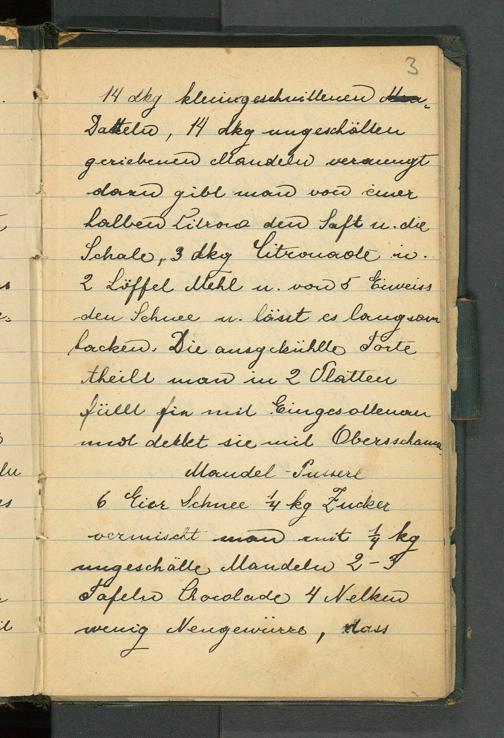 3
14 dkg kleingeschnittenen
Datteln, 14 dkg ungeschölten
geriebenen Mandeln vermengt
dann gibt man von einer
halben Citrone den Saft u. die
Schale, 3 dkg Citronade u.
2 Löffel Mehl u. von 5 Eiweiss
den Schnee u. lässt es langsam
backen. Die ausgekühlte Torte
theilt man in 2 Platten
füllt sie mit Eingesottenen
und dekket sie mit Obersschaum.
Mandel-Pusserl
6 Eier Schnee ¼ kg Zucker
vermischt man mit ¼ kg
ungeschälte Mandeln 2-3
Tafeln Chocolade 4 Nelken
wenig Neugewürze, dass